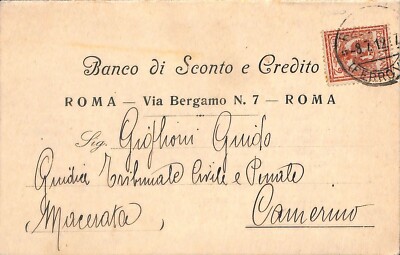 Banco di Sconto e Credito
ROMA — Via Bergamo N. 7 — ROMA
Sig. Giglioni Guido
Giudice Tribunale Civile e Penale
(Macerata) Camerino